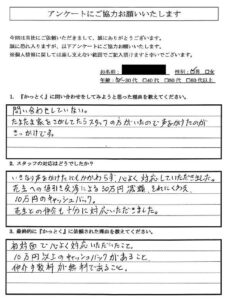 アンケートにご協力お願いいたします
今回は当社にご依頼いただきまして、誠にありがとうございます。
誠に恐れ入りますが、以下アンケートにご協力お願いいたします。
※個人情報に関しては差し支えない範囲でご記入頂けますと幸いでございます。
お名前
性別: 男 女
年齢: 20代 30代 40代 50代 60代 70代 80代以上
1. 『かっとく』に問い合わせをしてみようと思った理由を教えてください。
問い合わせをしていない。
たまたま家をさがしてたらスタッフの方がいたので声をかけたのが
きっかけです。
2. スタッフの対応はどうでしたか?
いきなり声をかけたにもかかわらず、心よく対応していただきました。
売主への値引き交渉による
10万円のキャッシュバック。
売主との仲介も十分に対応いただきました。
3. 最終的に『かっとく』に依頼された理由を教えてください。
心よく対応いただいたこと。
10万円以上のキャッシュバックがあること。
仲介手数料が無料であること。